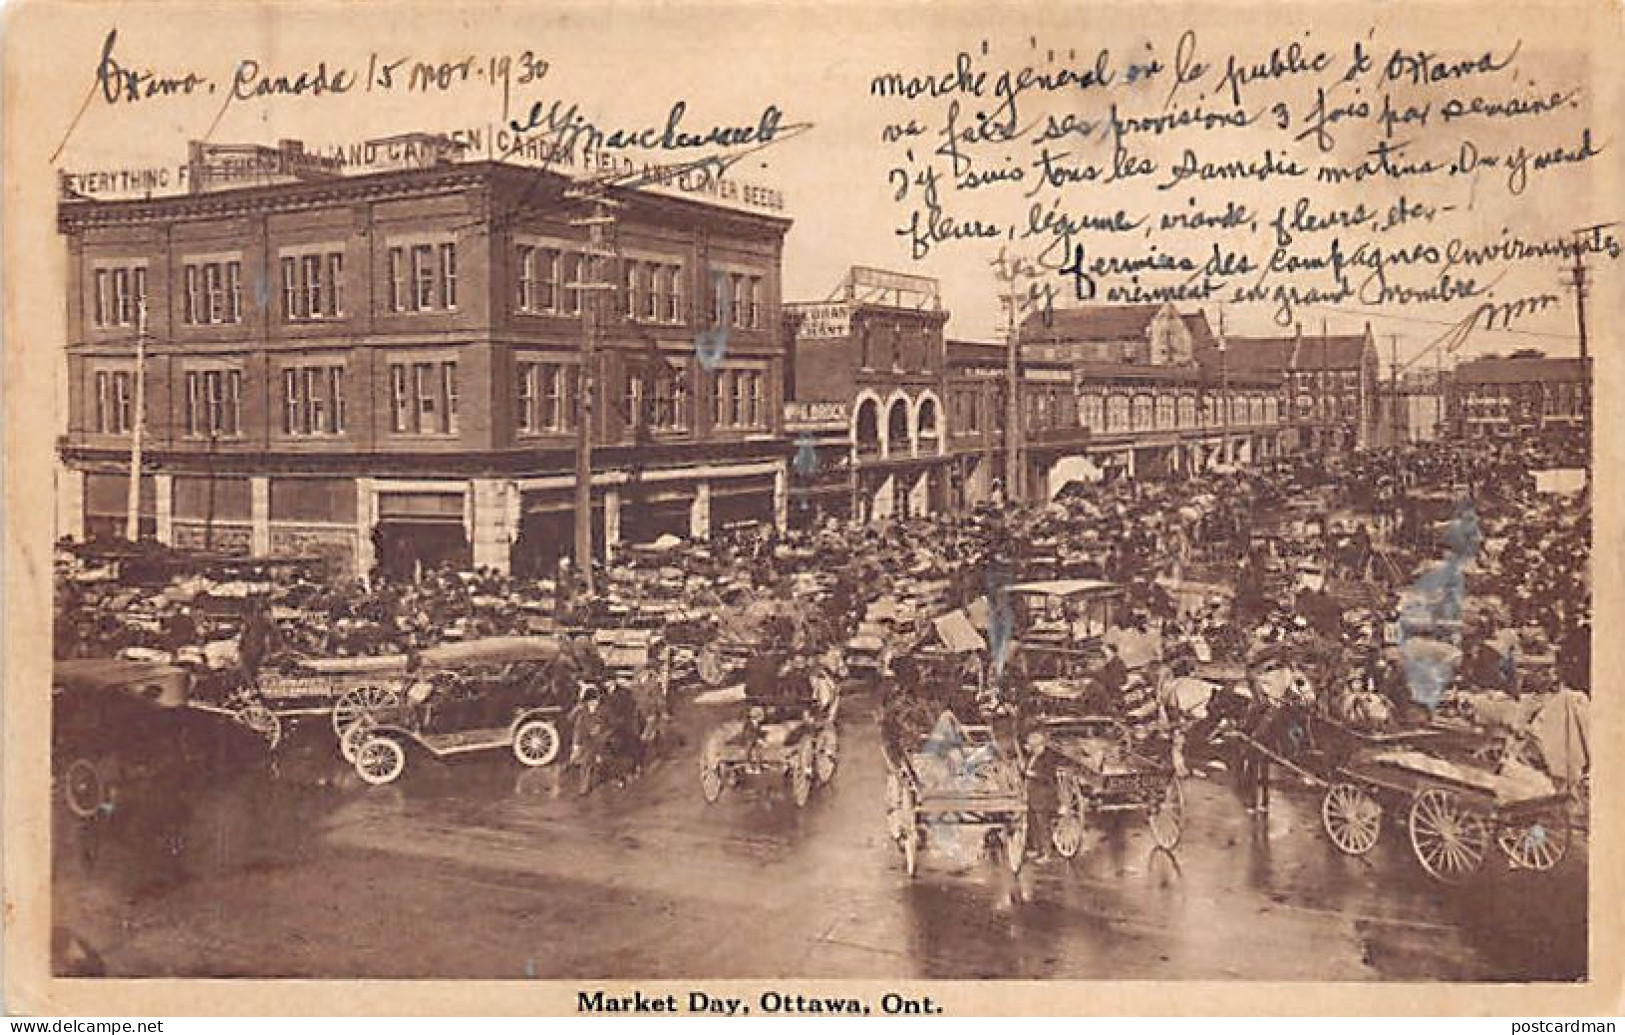 Ottawa, Canada 15 Nov. 1930
marché général où le public d'Ottawa,
va faire ses provisions 3 fois par semaine.
J'y suis tous les Samedis matins. On y vend
fleurs, légume, viande, fleurs, etc, -
les fermiers des campagnes environnantes
y viennent en grand nombre.
EVERYTHING F
AND GARDEN
GARDEN FIELD AND FLOWER SEEDS
BROCK
Market Day, Ottawa, Ont.
postcardman